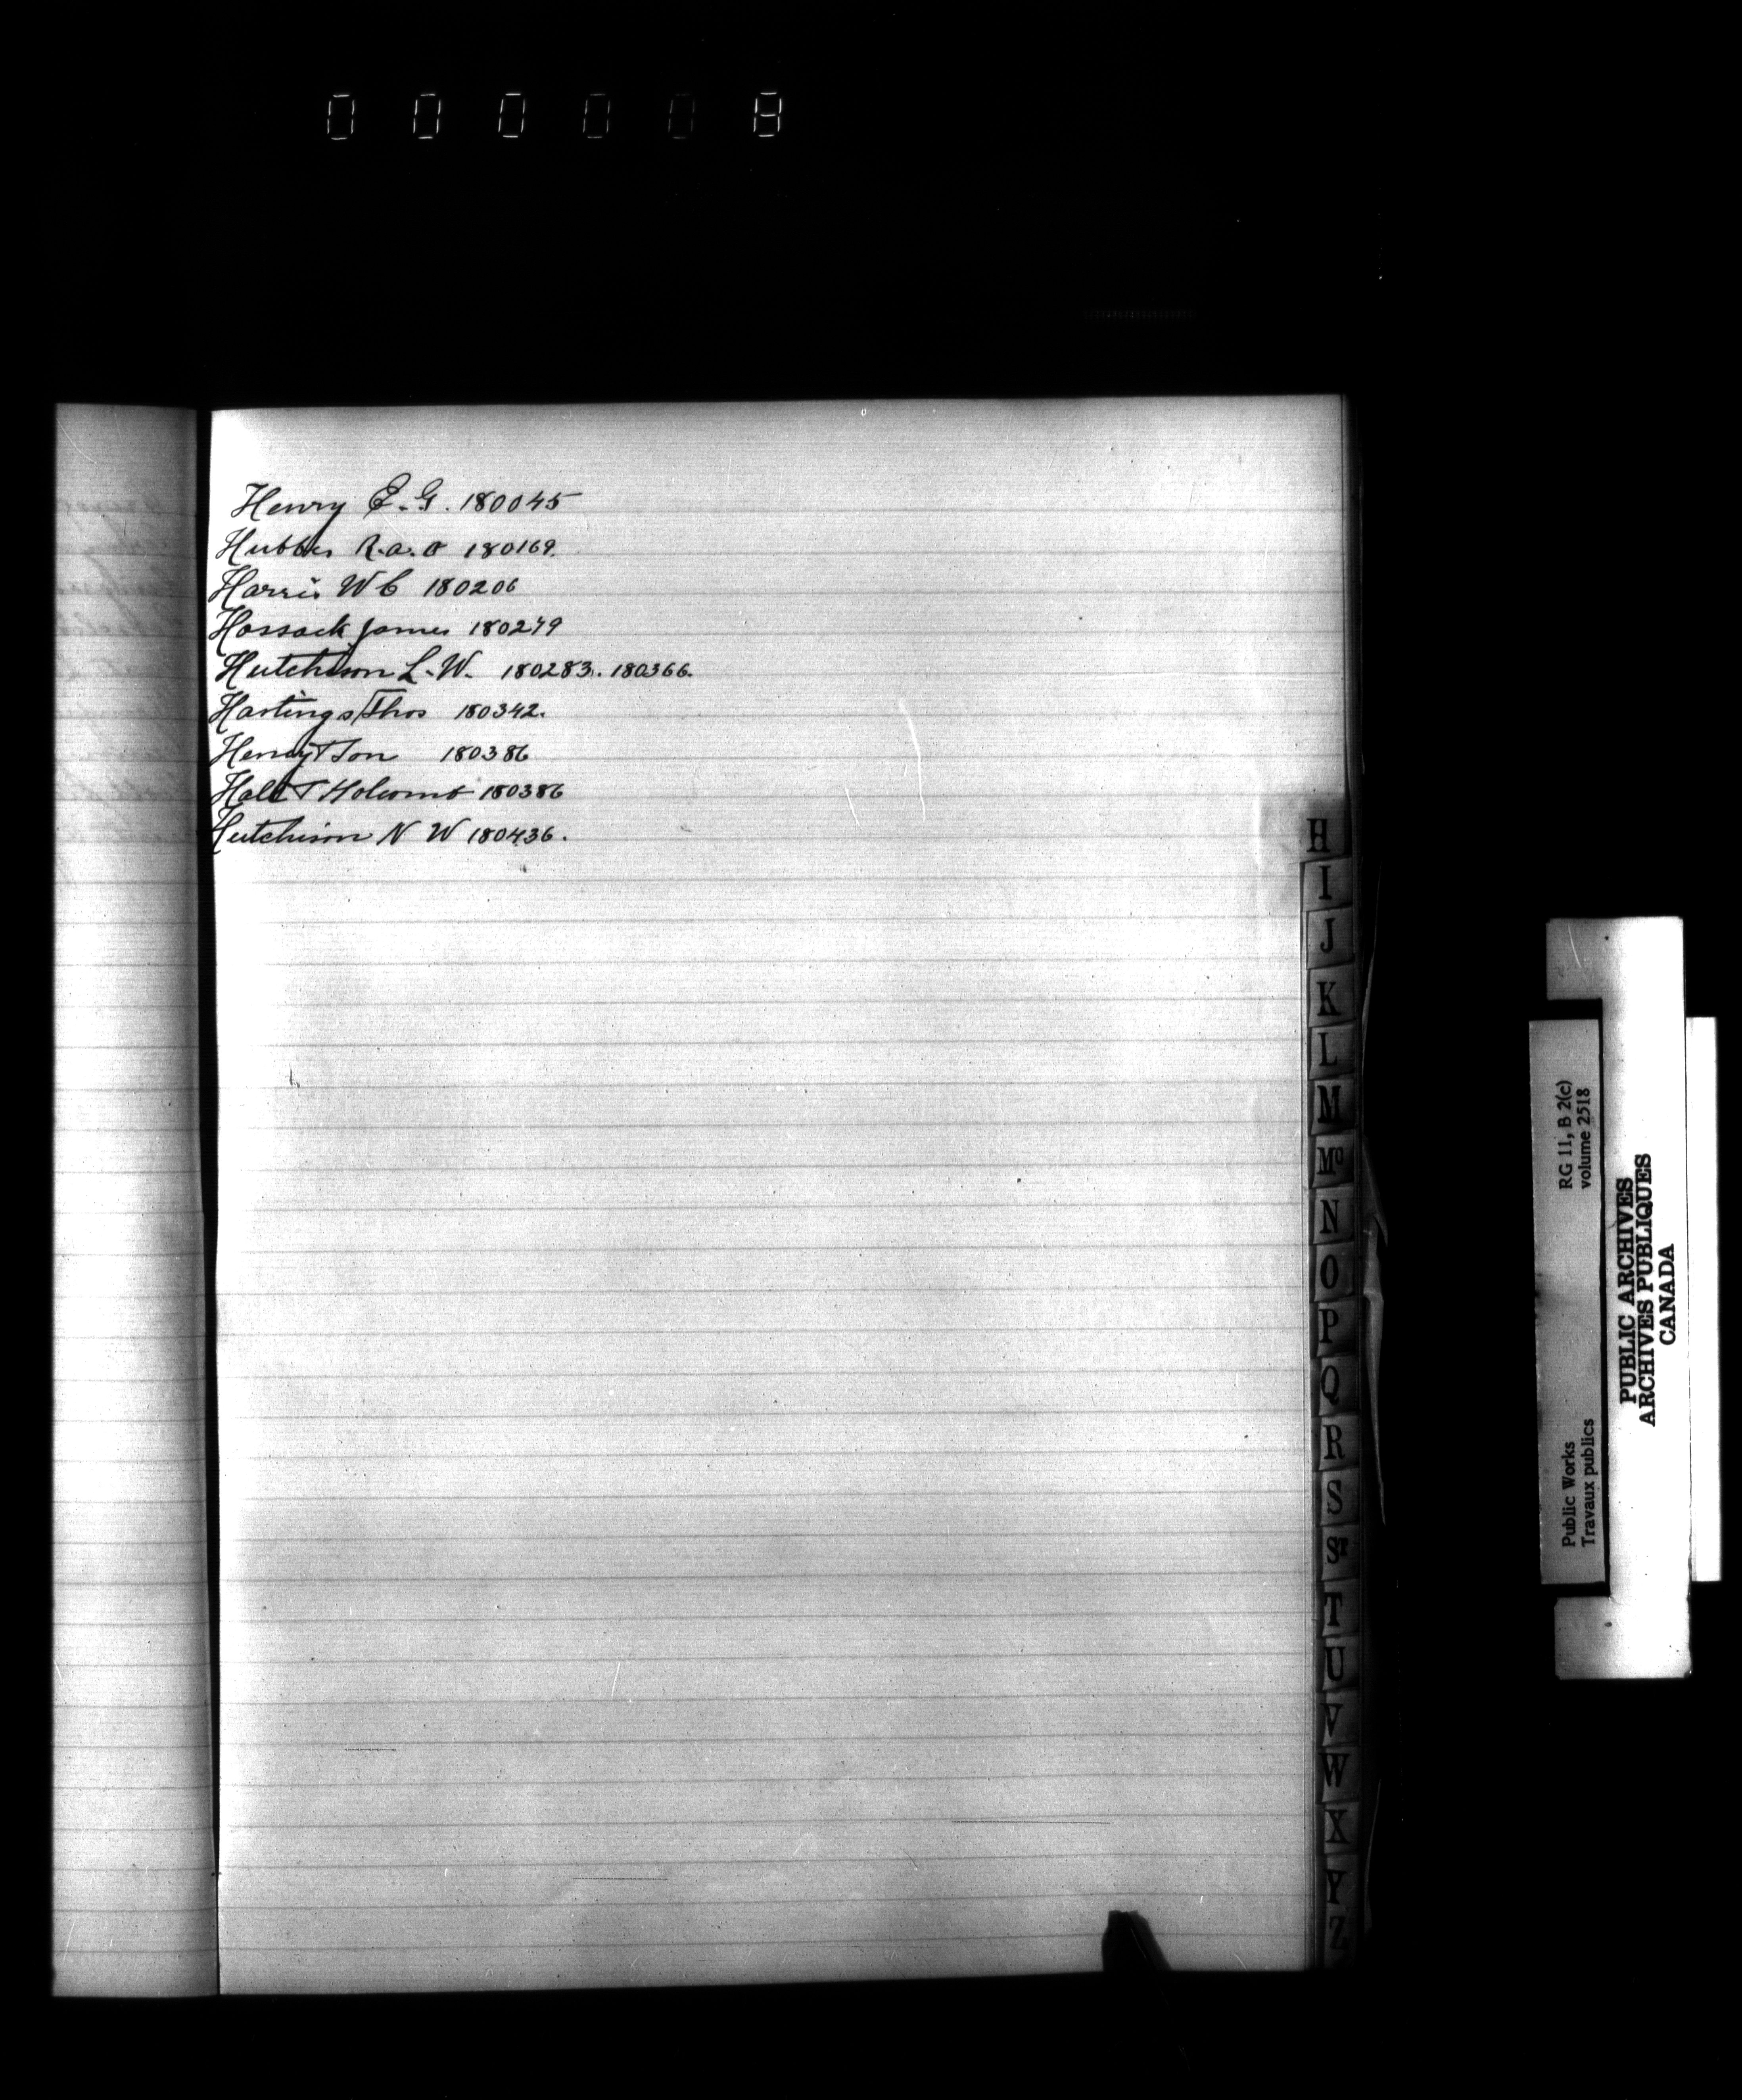 000008
Henry E. G. 180045
Hubbs R.a.o 180169.
Harris W C 180206
Hossack James 180279
Hutchison L. W. 180283. 180366.
Hastings Thos 180342.
Henry & Son 180386
Hall & Holcomb 180386
Hutchison N W 180436.
H
I
J
K
L
M
Mc
N
O
P
Q
R
S
T
U
V
W
X
Y
Z
Public Works RG 11, B 2(c)
Travaux publics volume 2518
PUBLIC ARCHIVES
ARCHIVES PUBLIQUES
CANADA